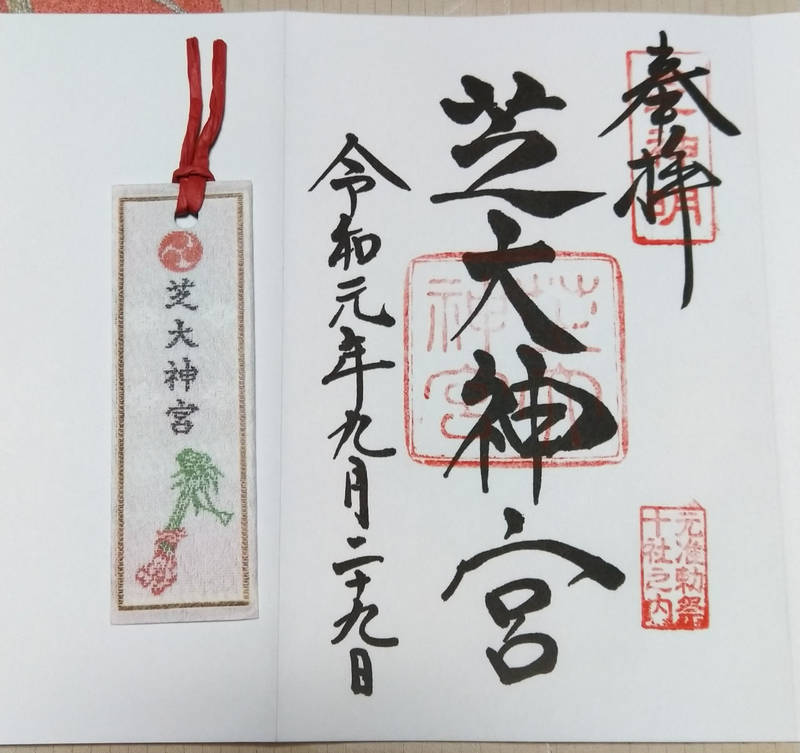 奉拝
芝大神宮
令和元年九月二十九日
元准勅祭
十社之内
芝大神宮